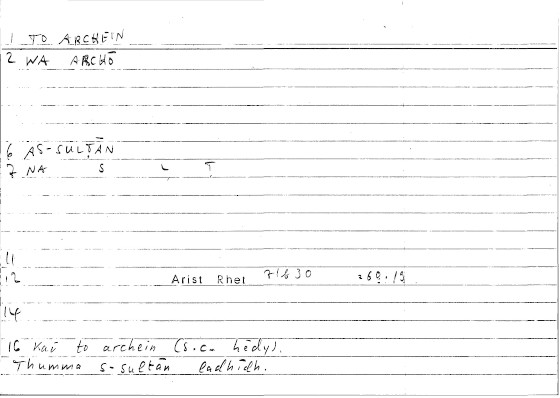 1 TO ARCHEIN
2 WA ARCHŌ
6 AS-SULṬĀN
7 NA S L Ṭ
11
12 Arist Rhet 71b30 :59.19
14
16 Kai to archein (s.c. hēdy).
Thumma s-sulṭān ladhīdh.